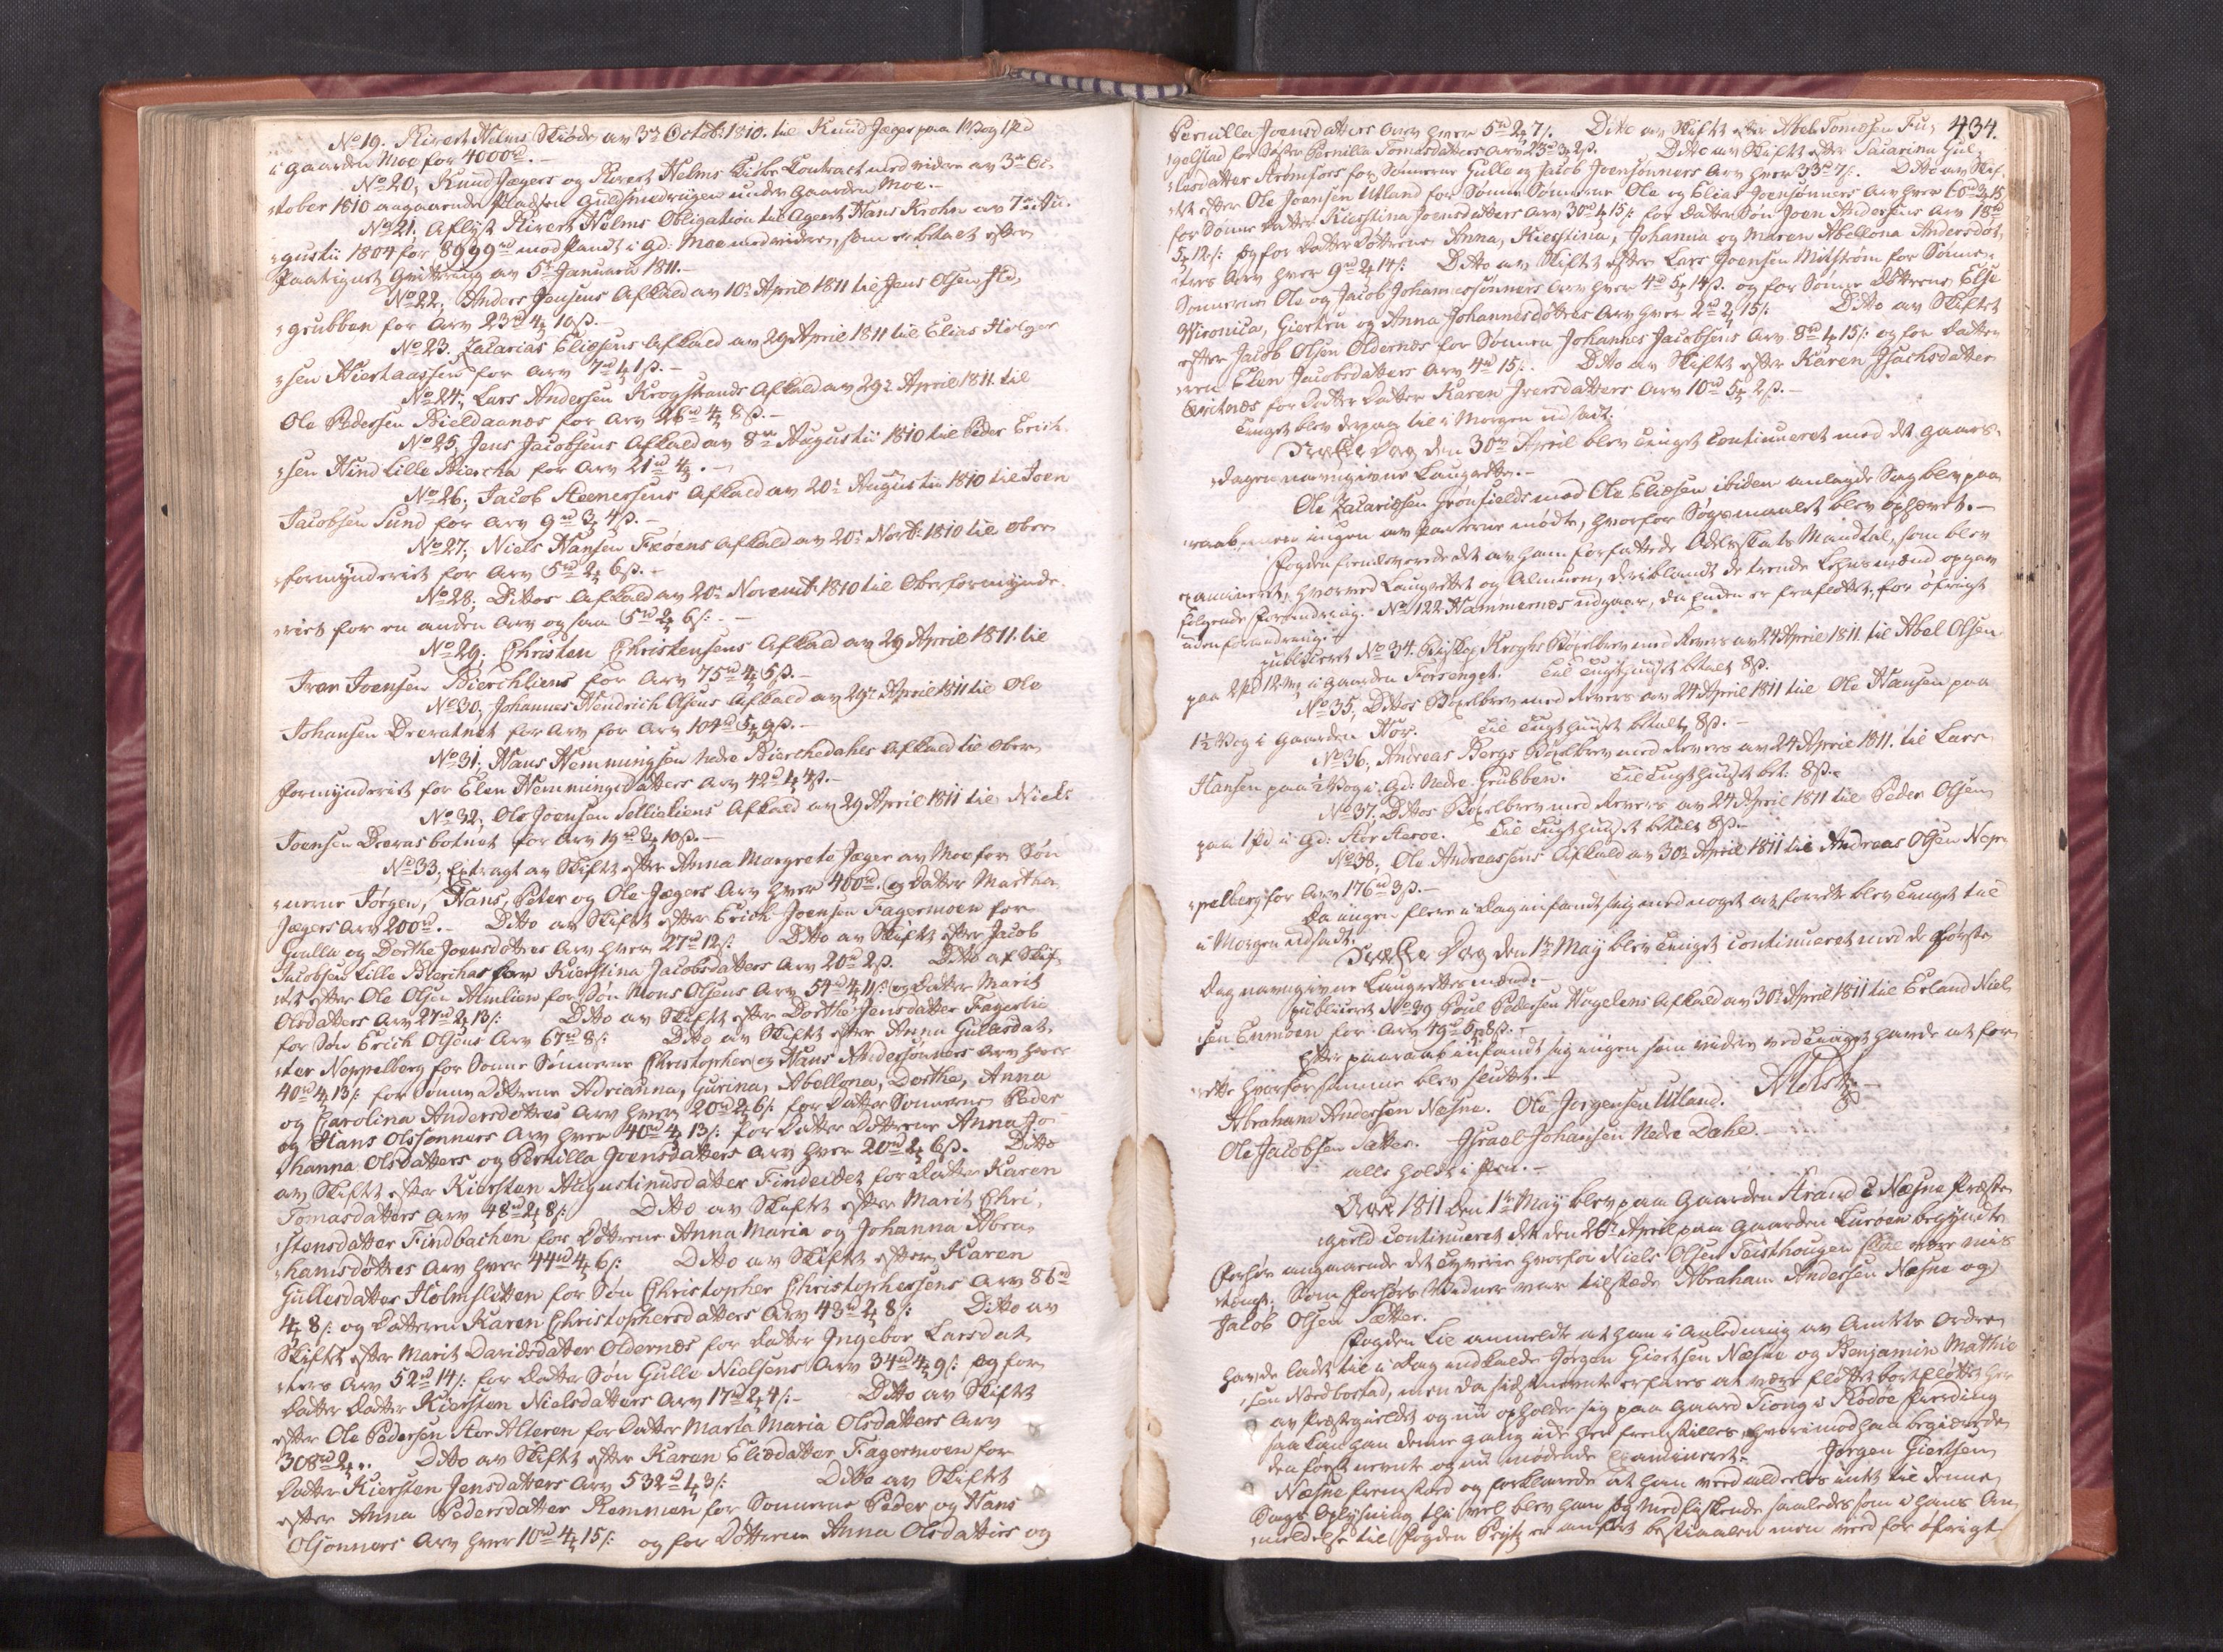 No 19. Rivert Helms Skiøde av 3die Octob: 1810. til Knud Jæger paa 1 Vog 1 Pd
i Gaarden Moe for 4000rd.-
No 20, Knud Jægers og Rivert Helms Kiøbe Contract med videre av 3die Oc-
tober 1810 angaaende Pladsen Guldsmedvigen under Gaarden Moe.-
No 21. Aflyst Rivert Helms Obligation til Agent Hans Krohn av 7de Au-
gustii 1804 for 8999rd mod Pandt i Gd: Moe med videre, som er betalt efter
Paategnet Qvittering av 5te Januarii 1811.-
No 22, Anders Jensens Afkald av 10de April 1811 til Jens Olsen
Grubben for Arv 23rd 4 10ß.-
No 23. Zacarias Eliæsens Afkald av 29 April 1811 til Elias Holger
sen for Arv 7rd 4 1ß.-
No 24, Lars Andersen Krogstrands Afkald av 29de April 1811. til
Ole Pedersen Bieldaanæs for Arv 26rd 4 8ß.-
No 25, Jens Jacobsens Afkald av 8de Augustii 1810 til Peder Erich-
sen Hund Lille Biercha for Arv 21rd 4.-
No 26, Jacob Steenersens Afkald av 20de Augustii 1810 til Joen
Jacobsen Sund for Arv 9rd 3 4ß.-
No 27, Niels Hansen Fxøens Afkald av 20de Novb: 1810 til Ober-
formynderiet for Arv 5rd 2 6ß.-
No 28, Dittos Afkald av 20de Novemb: 1810 til Oberformynde-
riet for en anden Arv ogsaa 5rd 2 6ß.-
No 29, Christen Christensens Afkald av 29 April 1811. til
Iver Joensen Bierchliens for Arv 75rd 4 5ß.-
No 30, Johannes Hendrich Olsens Afkald av 29de April 1811 til Ole
Johansen Drevatnet for Arv for Arv 104rd 5 9ß.-
No 31, Hans Hemmingsen Nedre Bierchedahls Afkald til Ober-
formynderiet for Elen Hemmings Datters Arv 42rd 4 4ß.-
No 32, Ole Joensen Selljeliens Afkald av 29 April 1811 til Niels
Joensen Drevasbotnet for Arv 19rd 3 10ß.-
No 33, Extragt av Skiftet efter Anna Margrete Jæger av Moe for Søn-
nerne Jørgen, Hans, Peter og Ole Jægers Arv hver 400rd. og Datter Martha
Jægers Arv 200rd.- Ditto av Skiftet efter Erich Joensen Fagermoen for
Gulla og Dorthe Joensdøttres Arv hver 27rd 12ß. Ditto av Skiftet efter Jacob
Jacobsen Lille Bierchas for Kierstina Jacobsdatters Arv 20rd 2ß. Ditto af Skif-
tet efter Ole Olsen Almlien for Søn Mons Olsens Arv 54rd 4 11ß: og Datter Marit
Olsdatters Arv 27rd 2 13ß: Ditto av Skiftet efter Dorthe Jensdatter Fagerlie
for Søn Erich Olsens Arv 67rd 8ß: Ditto av Skiftet efter Anna Gulesdat-
ter Neppelberg for Sønne Sønnerne Christopher og Hans Andersønners Arv hver
40rd 4 13ß: for Sønne Døttrene Adrianna, Gurina, Abellona, Dorthe, Anna
og Carolina Andersdøttres Arv hver 20rd 2 6ß: for Datter Sønnerne Peder
og Hans Olssønners Arv hver 40rd 4 13ß: for Datter Døttrene Anna Jo-
hanna Olsdatters og Pernilla Joensdatters Arv hver 20rd 2 6ß. Ditto
av Skiftet efter Kiersten Augustinusdatter Findeidet for Datter Karen
Tomasdatters Arv 48rd 2 8ß: Ditto av Skiftet efter Marit Chri-
stensdatter Findbachen for Døttrene Anna Maria og Johanna Abra-
hamsdøttres Arv hver 44rd 4 6ß: Ditto av Skiftet efter Karen
Gullesdatter Holmslitten for Søn Christopher Christophersens Arv 86rd
4 8ß: og Datteren Karen Christophersdatters Arv 43rd 2 8ß: Ditto av
Skiftet efter Marit Davidsdatter Oldernæs for Datter Ingebor Larsdat-
ters Arv 52rd 14ß: for Datter Søn Gulle Nielsens Arv 34rd 4 9ß: og for
Datter Datter Kiersten Nielsdatters Arv 17rd 2 4ß:- Ditto av Skiftet
efter Ole Pedersen Stor Alteren for Datter Marta Maria Olsdatters Arv
308rd 2. Ditto av Skiftet efter Karen Eliædatter Fagermoen for
Datter Kiersten Jensdatters Arv 532rd 4 3ß: Ditto av Skiftet
efter Anna Pedersdatter Remmen for Sønnerne Peder og Hans
Olsønners Arv hver 10rd 4 15ß: og for Døttrene Anna Olsdatters og
434.
Pernilla Joensdatters Arv hver 5rd 2 7ß. Ditto av Skiftet efter Abel Tomæsen Fu-
gelstad for Søster Pernilla Tomasdatters Arv 23rd 3 2ß. Ditto av Skiftet efter Zacarina Gul-
lesdatter Strømfors for Sønnerne Gulle og Jacob Joensønners Arv hver 33rd 7ß. Ditto av Skif-
tet efter Ole Joensen Utland for Sønne Sønnerne Ole og Elias Joensønners Arv hver 60rd 3 15
for Sønne Datter Kierstina Joensdatters Arv 30rd 4 15ß: for Datter Søn Joen Andersens Arv 18rd
5 12ß: og for Datter Døttrene Anna, Kierstina, Johanna og Maren Abellona Andersdøt-
ters Arv hver 9rd 2 14ß: Ditto av Skiftet efter Lars Joensen Milstrøm for Sønne
Sønnerne Ole og Jacob Johannessønners Arv hver 4rd 5 14ß. og for Sønne Døttrene Else
Wironica, Giertru og Anna Johannesdøtres Arv hver 2rd 2 15ß: Ditto av Skiftet
efter Jacob Olsen Oldernæs for Sønnen Johannes Jacobsens Arv 8rd 4 15ß: og for Datte-
ren Elen Jacobsdatters Arv 4rd 15ß:. Ditto av Skiftet efter Karen Isachsdatter
Qvitnæs for Datter Datter Karen Iversdatters Arv 10rd 5 2ß.-
Tinget blev derpaa til i Morgen udsadt.
Tredie Dag den 30te April blev Tinget Continueret med det gaars-
dagen navngivne Laugrette.-
Ole Zacariæsen Grønfields mod Ole Eliæsen ibidem anlagde Sag blev paa-
raabt, men ingen av Parterne mødte, hvorfor Søgsmaalet blev ophævet.-
Fogden fremleverede det av ham forfattede Odelsskats Mandtal, som blev
examineret, hvorved Laugrettet og Almuen, deriblandt de tvende Lehnsmænd opgav
følgende Forandring. No 122 Hammernæs udgaar, da Enden er frafløttet, for øfrigt
uden forandring.
publiceret No 34. Biskop Kroghs Bøxelbrev med Revers av 24 April 1811. til Abel Olsen
paa 2 Pd 12 mrk i Gaarden Forsenget. Til Tugthuuset betalt 8ß.
No 35, Dittos Bøxelbrev med Revers av 24 April 1811 til Ole Hansen paa
1½ Vog i Gaarden Hov. Til Tugthuuset betalt 8ß.-
No 36, Andreas Bergs Bøxelbrev med Revers av 24 April 1811. til Lars
Hansen paa ½ Vog i Gd: Nedre Grubben. Til Tugthuuset bet: 8ß.-
No 37. Dittos Bøxelbrev med Revers av 24 April 1811 til Peder Olsen
paa 1 Pd i Gd: Stor Steroe. Til Tugthuuset betalt 8ß.-
No 38, Ole Andreassens Afkald av 30te April 1811 til Andreas Olsen Nep-
pelberg for Arv 176rd 3ß.-
Da ingen flere i Dag infandt sig med noget at forrette blev Tinget til
i Morgen udsadt.
Fierde Dag den 1te May blev Tinget Continueret med de første
Dag navngivne Laugrettesmænd.-
publiceret No 39 Poul Pedersen Hagelens Afkald av 30te April 1811 til Erland Niel-
sen Enmoen for Arv 49rd 5 8ß.-
Efter paaraab infandt sig ingen som videre ved Tinget havde at for-
rette hvorfor samme blev sluttet.-
Abraham Andersen Næsne. Ole Jørgensen Utland.
Ole Jacobsen Sætter. Israel Johansen Nedre Dahl.-
alle holdt i Pen.-
Aar 1811 den 1te May blev paa Gaarden Strand i Næsne Præste-
gield Continueret det den 26de April paa Gaarden Lurøen begyndte
Forhør angaaende det Tyverie hvorfor Niels Olsen Teisthougen skal være mis-
tænkt. Som Forhørs Vidner var tilstede Abraham Andersen Næsne og
Jacob Olsen Sætter.
Fogden Lie anmeldte at han i Anledning av Amtets Ordre
havde ladet til i Dag indkalde Jørgen Giertsen Næsne og Benjamin Mathiæ-
sen Nordbostad, men da sidstnævnte erfares at være fløttet bortfløttet her
av Præstegieldet og nu opholder sig paa Gaard Tiong i Rødøe Fierding
saa kan han denne gang ikke her fremstilles, hvorimod han begiærede
den først nævnte og nu mødende Examineret. Jørgen Giertsen
Næsne fremstoed og forklarede at han veed aldeeles intet til denne
Sags Oplysning thi vel blev han og Medfiskende saaledes som i hans An-
meldelse til Fogden Brytz er anført bestiaalen men veed for øfrigt